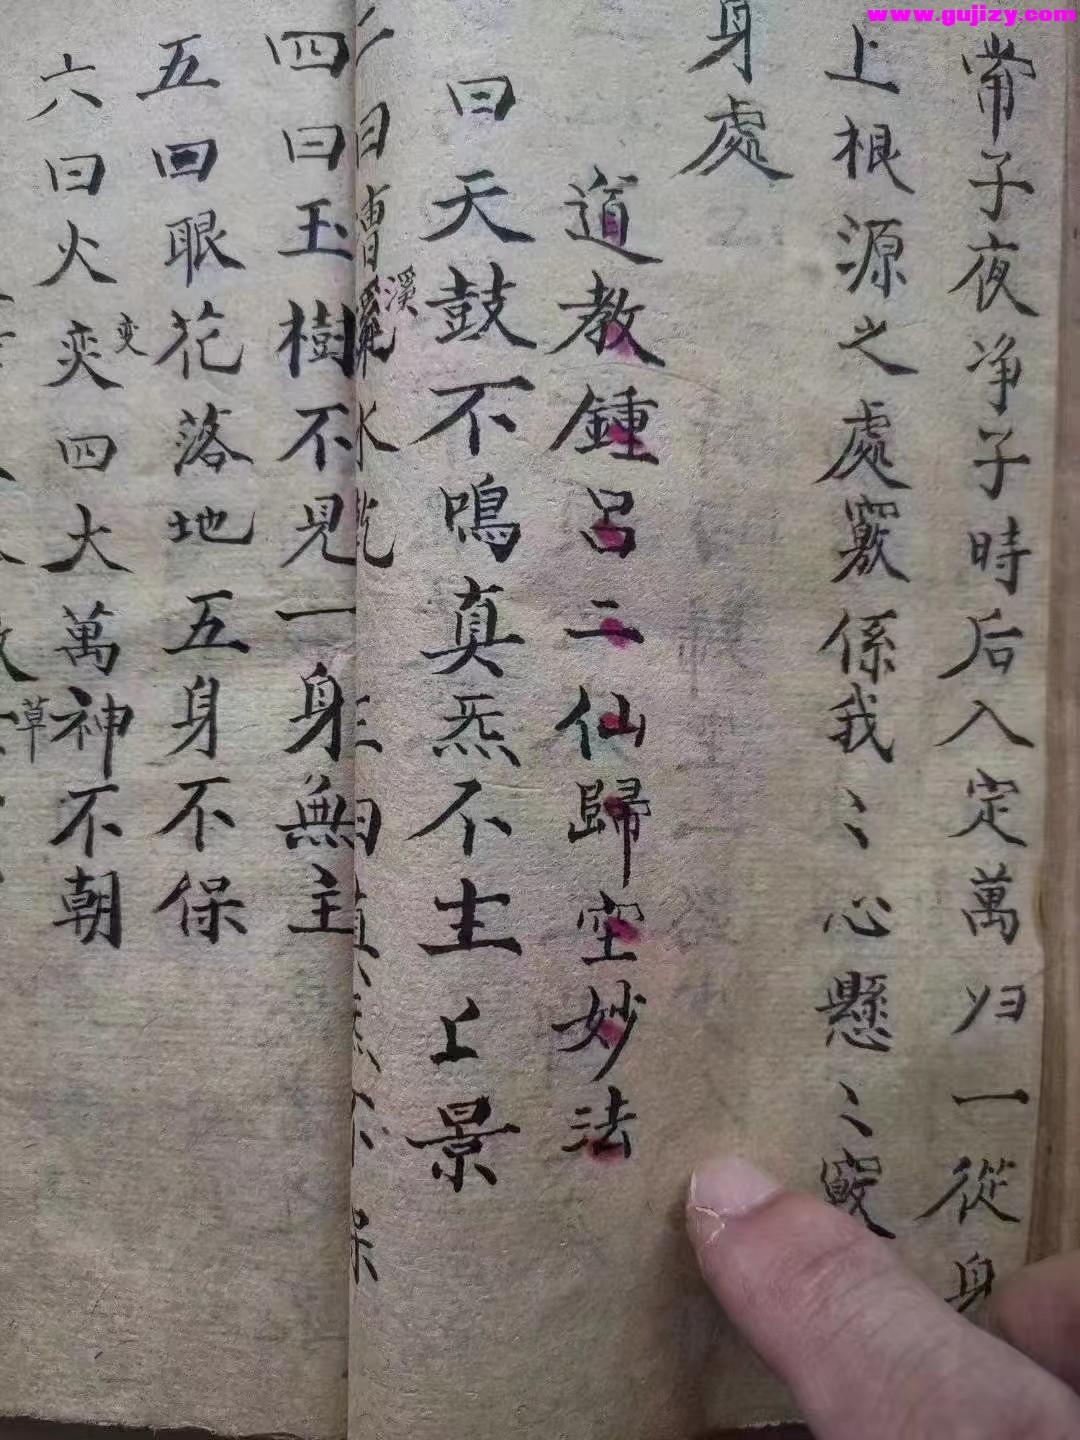 www.gujizy.com
常子夜净子時后入定萬归一從身
上根源之處竅係我〻心懸〻竅
身處
道教鍾呂二仙歸空妙法
曰天鼓不鳴真炁不主上景
曰曹溪水乾
四曰玉樹不見一身無主
五曰眼花落地五身不保
六曰火奕变四大萬神不朝
草